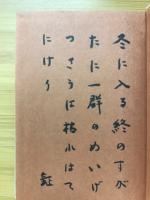 冬に入る終のすが
たに一群のめいげ
つさうは枯れはて
にけり